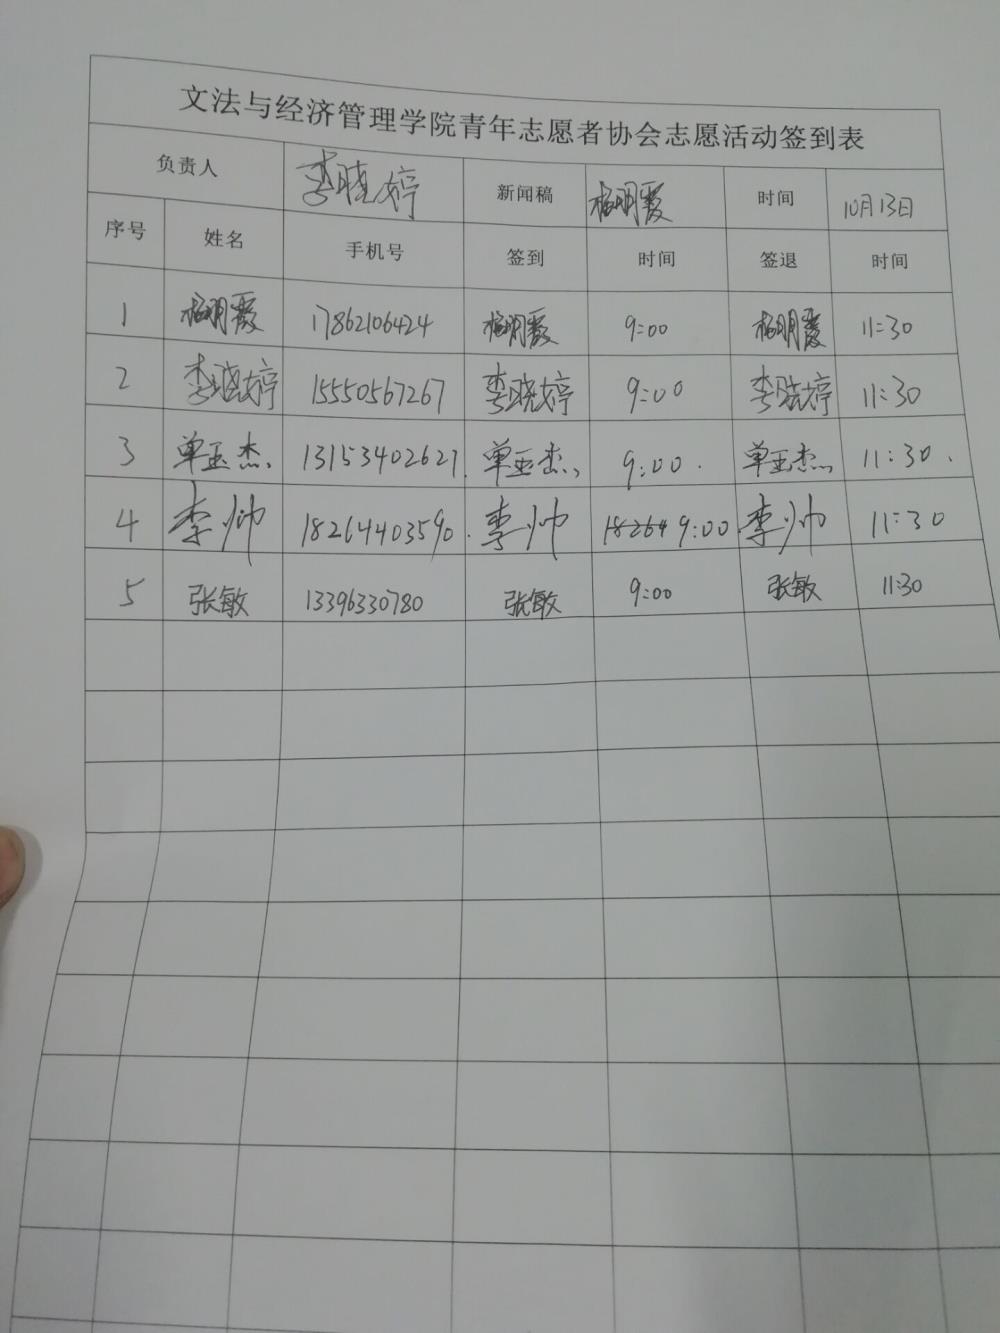 文法与经济管理学院青年志愿者协会志愿活动签到表
负责人 李晓婷 新闻稿 杨明霞 时间 10月13日
序号 姓名 手机号 签到 时间 签退 时间
1 杨明霞 17862106424 杨明霞 9:00 杨明霞 11:30
2 李晓婷 15550567267 李晓婷 9:00 李晓婷 11:30
3 单玉杰 13153402627 单玉杰 9:00 单玉杰 11:30
4 李帅 18264403590 李帅 18264 9:00 李帅 11:30
5 张敏 13396330780 张敏 9:00 张敏 11:30